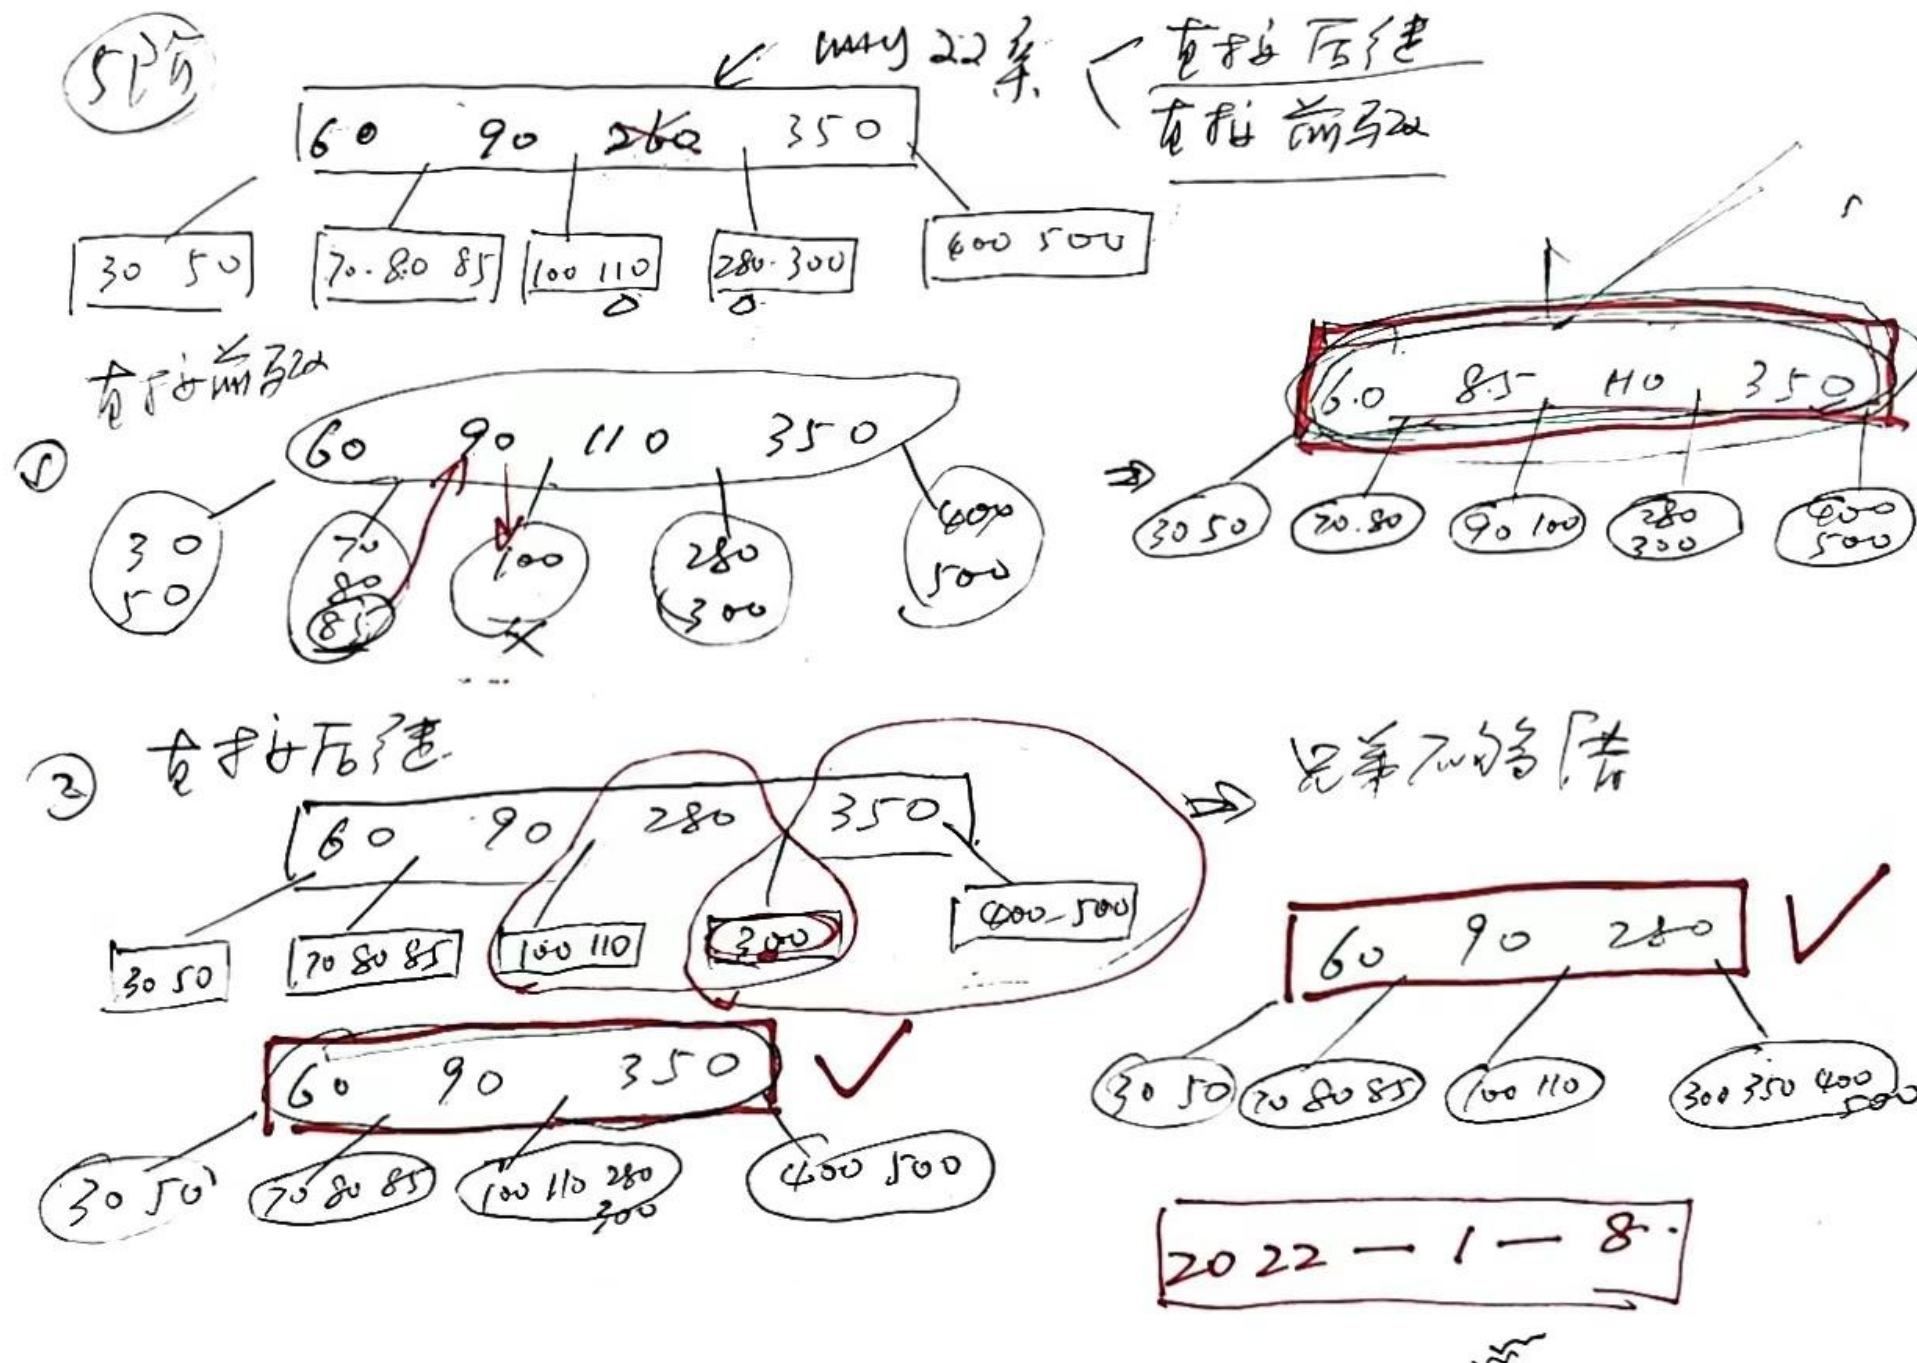 5阶
直接后继
直接前驱
60 90 260 350
30 50
70·80 85
100 110
280·300
400 500
直接前驱
①
60 90 110 350
30
50
70
80
85
100
280
300
400
500
⇒
60 85 110 350
30 50
70·80
90 100
280
300
400
500
② 直接后继
60 90 280 350
30 50
70 80 85
100 110
300
400-500
⇒ 兄弟不够借
60 90 280
30 50
70 80 85
100 110
300 350 400
500
60 90 350
30 50
70 80 85
100 110 280
300
400 500
2022-1-8.